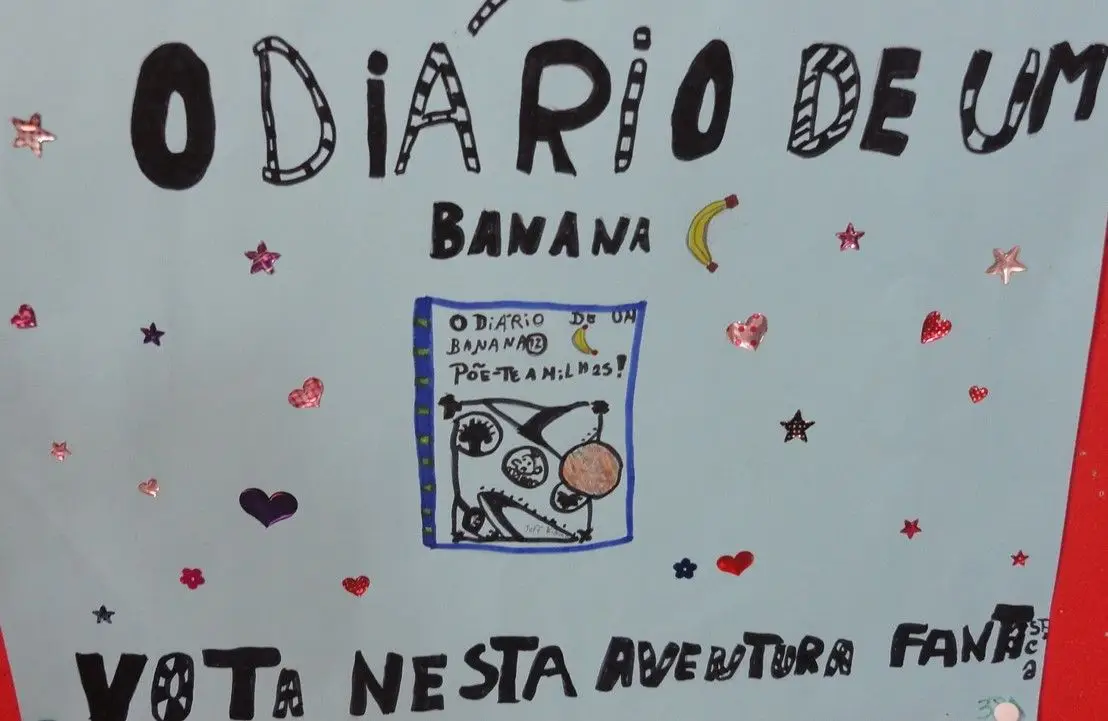 O DiÁRiO DE UM
BANANA
O DiÁRiO DE UM
BANANA 12
PÕE-TE A MiLHAS!
JEFF
VOTA NESTA AVENTURA FANTÁSTiCA